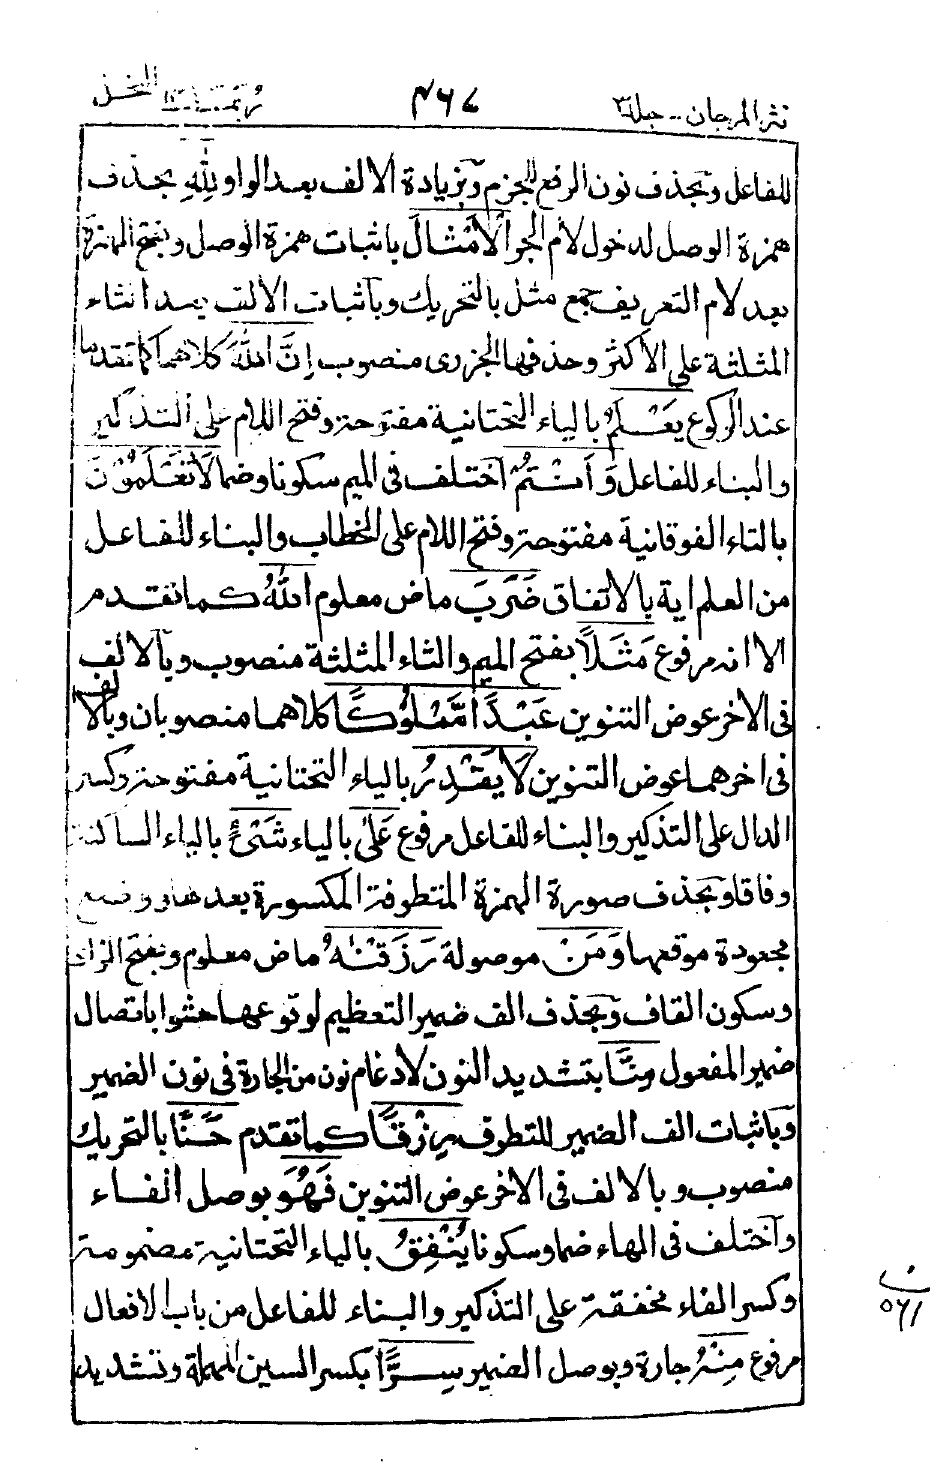 نثر المرجان - جلد٣ ٤٦٧ ربما ١٤ النحل
للفاعل وبحذف نون الرفع للجزم وبزيادة الالف بعد الواو لِلّٰهِ بحذف
همزة الوصل لدخول لام الجر الْاَمْثَالَ باثبات همزة الوصل وبفتح الهمزة
بعد لام التعريف جمع مثل بالتحريك وباثبات الالف بعد الثاء
المثلثة على الاكثر وحذفها الجزرى منصوب اِنَّ اللّٰهَ كلاهما كما تقدما
عند الركوع يَعْلَمُ بالياء التحتانية مفتوحة وفتح اللام على التذكير
والبناء للفاعل وَاَنْتُمْ اختلف فى الميم سكونا وضما لَا تَعْلَمُوْنَ
بالتاء الفوقانية مفتوحة وفتح اللام على الخطاب والبناء للفاعل
من العلم اية بالاتفاق ضَرَبَ ماض معلوم اللّٰهُ كما تقدم
الا انه مرفوع مَثَلًا بفتح الميم والثاء المثلثة منصوب وبالالف
فى الاخر عوض التنوين عَبْدًا مَّمْلُوْكًا كلاهما منصوبان وبالالف
فى اخرهما عوض التنوين لَا يَقْدِرُ بالياء التحتانية مفتوحة وكسر
الدال على التذكير والبناء للفاعل مرفوع عَلٰى بالياء شَىْءٍ بالياء الساكنة
وفاقا وبحذف صورة الهمزة المتطرفة المكسورة بعدها ووضع
مجعودة موقعها وَمَنْ موصولة رَزَقْنٰهُ ماض معلوم وبفتح الزاء
وسكون القاف وبحذف الف ضمير التعظيم لوقوعها حشوا باتصال
ضمير المفعول مِنَّا بتشديد النون لادغام نون من الجارة فى نون الضمير
وباثبات الف الضمير للتطرف رِزْقًا كما تقدم حَسَنًا بالتحريك
منصوب وبالالف فى الاخر عوض التنوين فَهُوَ بوصل الفاء
واختلف فى الهاء ضما وسكونا يُنْفِقُ بالياء التحتانية مضمومة
وكسر الفاء مخففة على التذكير والبناء للفاعل من باب الافعال
مرفوع مِنْهُ جارة وبوصل الضمير سِرًّا بكسر السين المهملة وتشديد